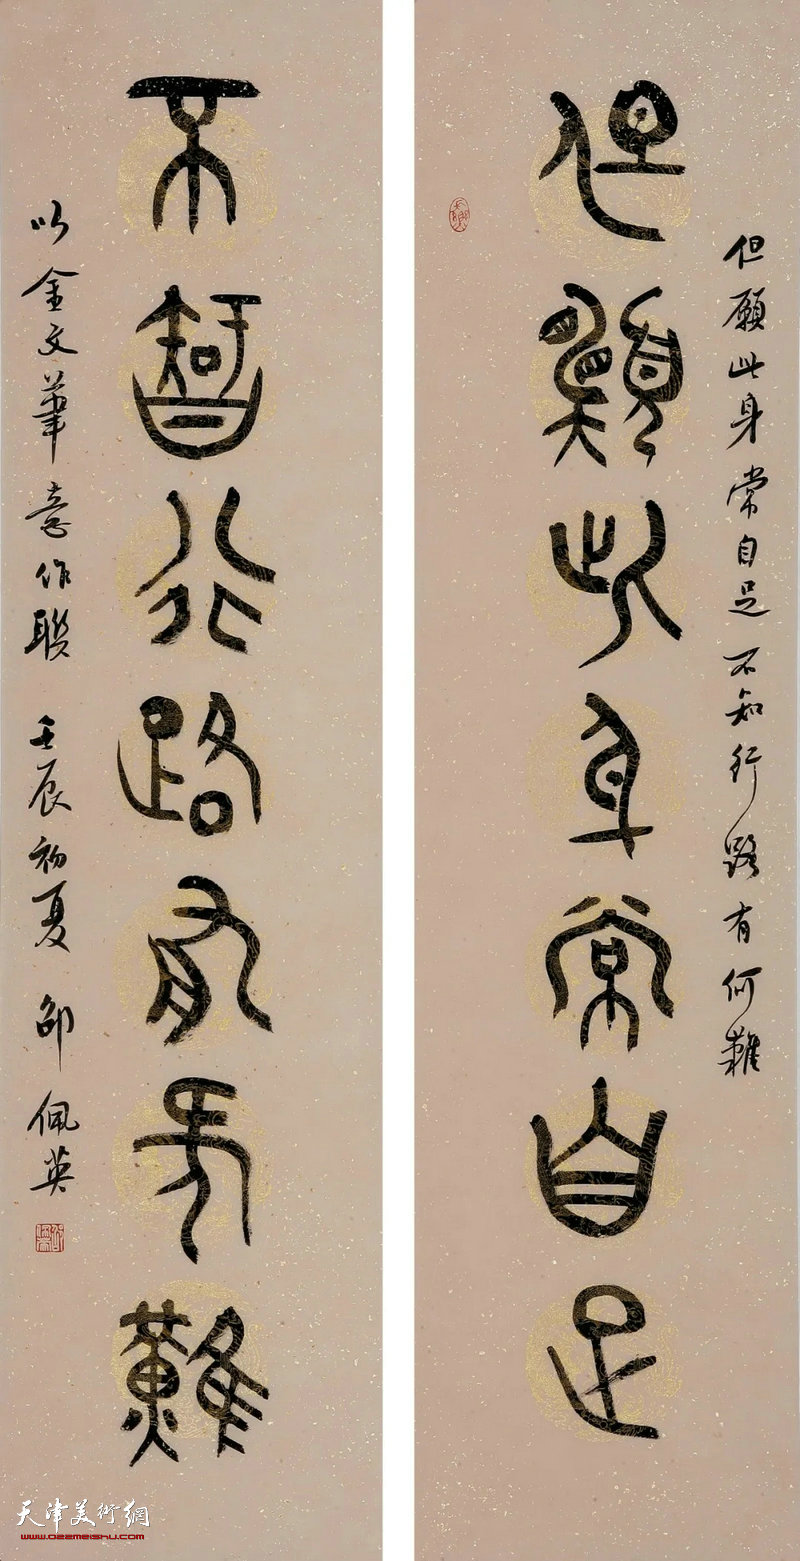 但願此身常自足不知行路有何難
但願此身常自足
不智行路有何難
以金文筆意作聯 壬辰初夏 邵佩英
天津美術網
www.022meishu.com